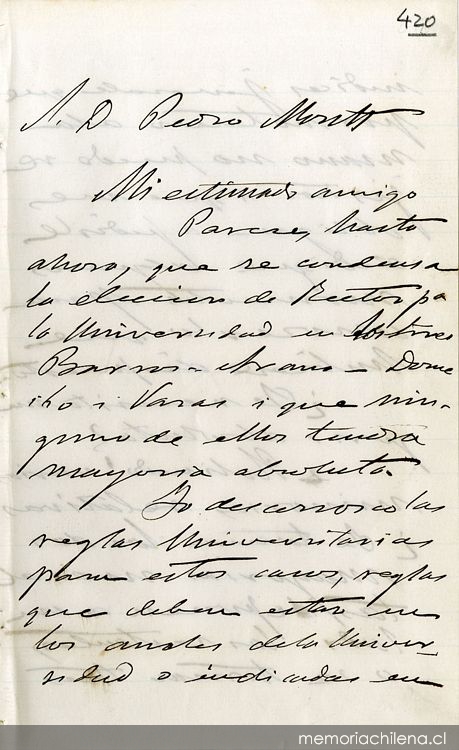 420
S. D Pedro Montt
Mi estimado amigo
Parece, hasta
ahora, que se condensa
la eleccion de Rector pa
la Universidad en los tres
Barros-Arana - Dome
iko i Varas i que nin-
guno de ellos tendra
mayoria absoluta.
Yo desconosco las
reglas Universitarias
para estos casos, reglas
que deben estar en
los anales de la Univer-
sidad o indicadas en
memoriachilena.cl